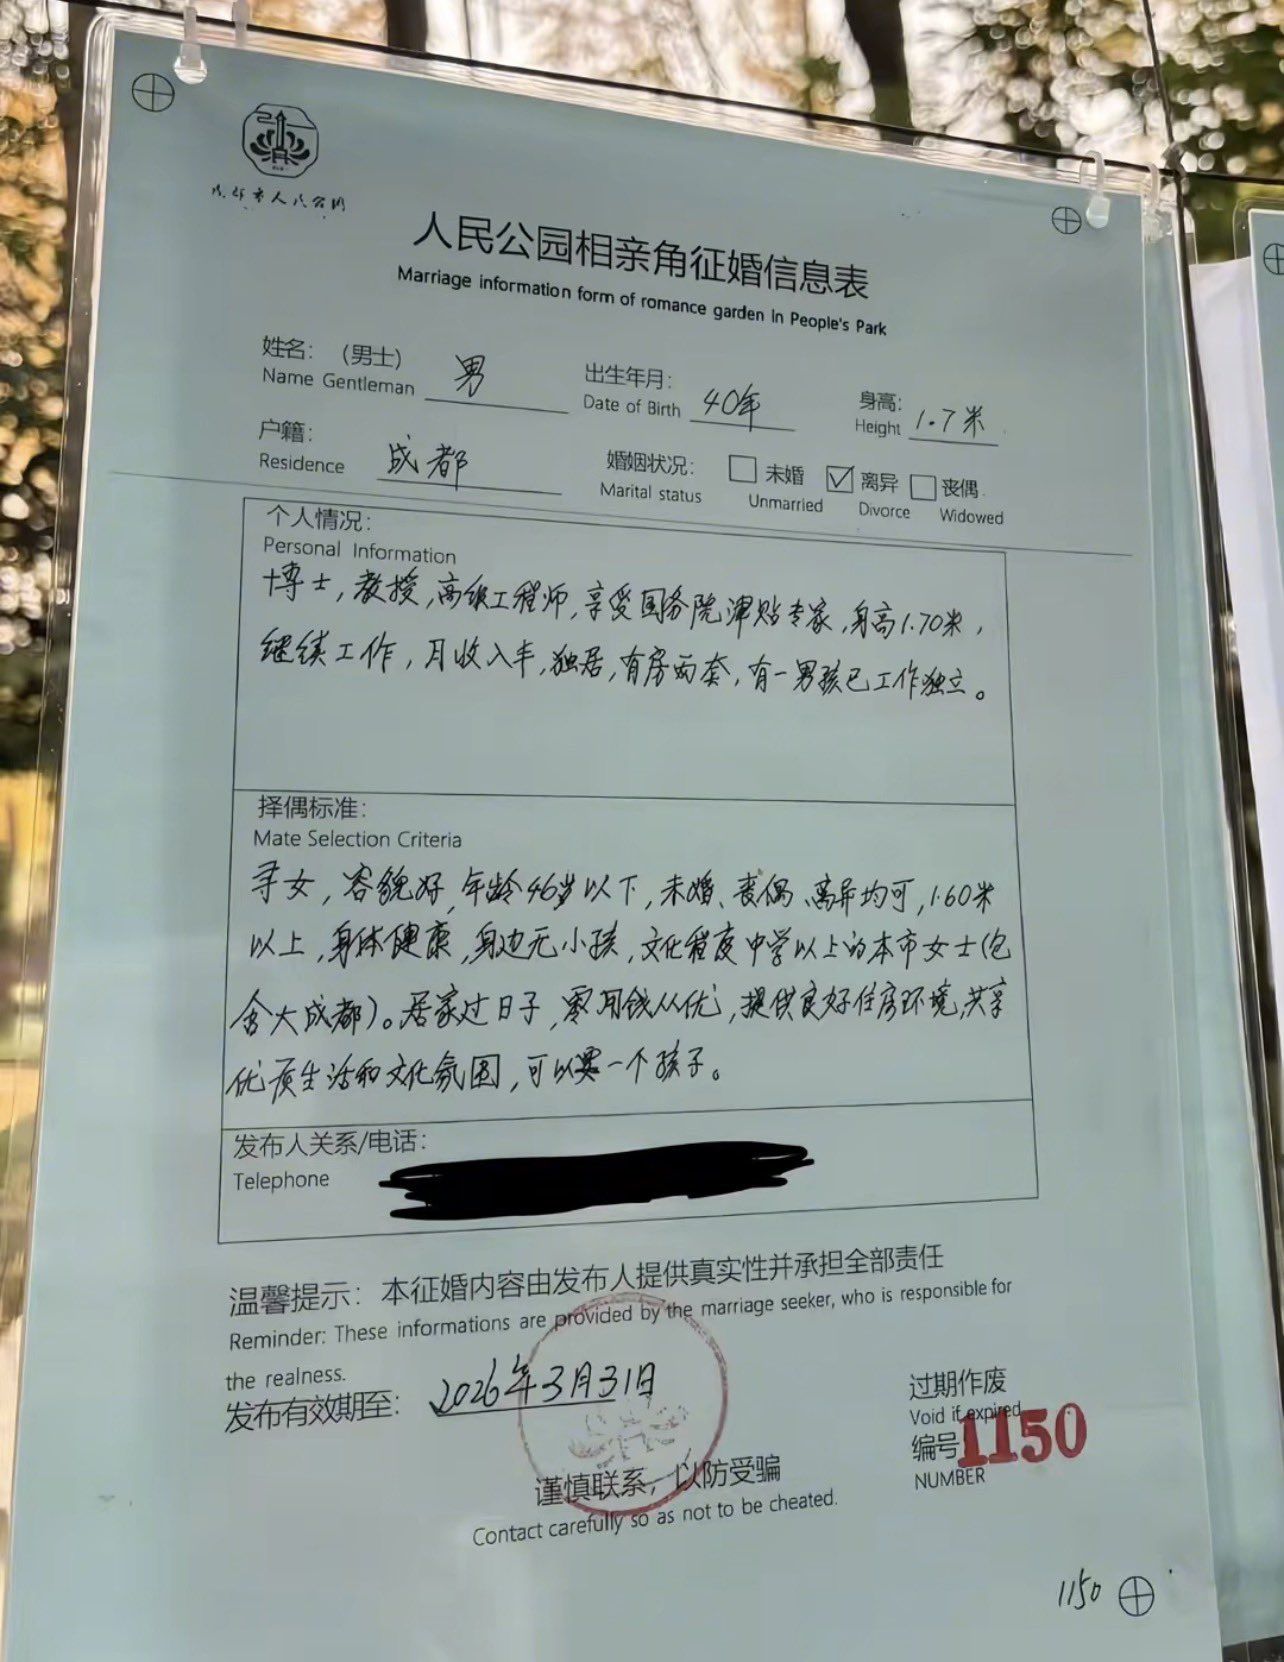 成都市人民公园
人民公园相亲角征婚信息表
Marriage information form of romance garden In People's Park
姓名：（男士） 男 出生年月： 40年 身高： 1.7米
Name Gentleman Date of Birth Height
户籍： 成都 婚姻状况： 未婚 ☑ 离异 丧偶
Residence Marital status Unmarried Divorce Widowed
个人情况：
Personal Information
博士，教授，高级工程师，享受国务院津贴专家，身高1.70米，
继续工作，月收入丰，独居，有房两套，有一男孩已工作独立。
择偶标准：
Mate Selection Criteria
寻女，容貌好，年龄46岁以下，未婚、丧偶、离异均可，1.60米
以上，身体健康，身边无小孩，文化程度中学以上的本市女士（包
含大成都）。居家过日子，零用钱从优，提供良好住房环境，共享
优质生活和文化氛围，可以要一个孩子。
发布人关系/电话：
Telephone
温馨提示：本征婚内容由发布人提供真实性并承担全部责任
Reminder: These informations are provided by the marriage seeker, who is responsible for
the realness.
发布有效期至： 2026年3月31日
过期作废
Void if expired
编号 1150
NUMBER
谨慎联系，以防受骗
Contact carefully so as not to be cheated.
1150